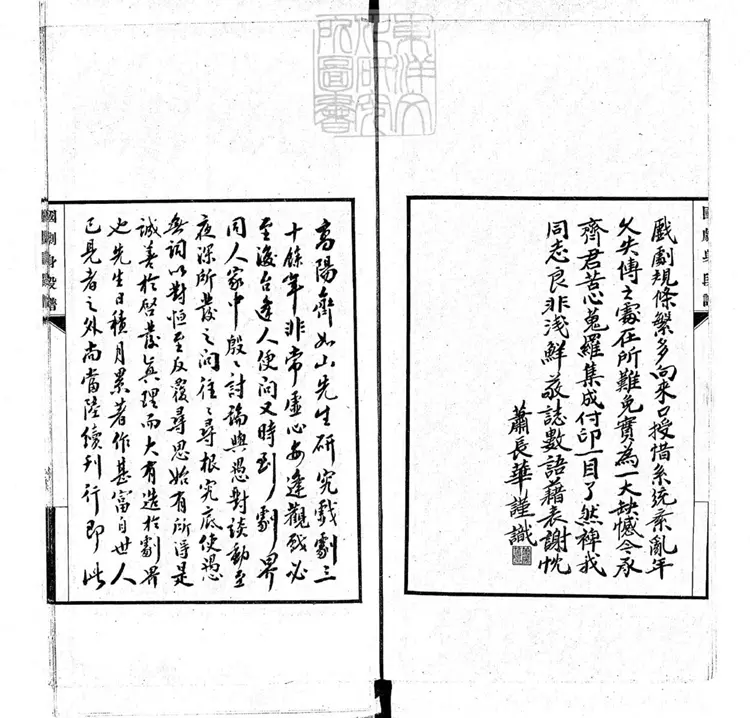 東洋文
化研究
所圖書
國劇身段譜
戲劇規條繁多向來口授惜系統紊亂年
久失傳之處在所難免實為一大缺憾今承
齊君苦心蒐羅集成付印一目了然裨我
同志良非淺鮮敬誌數語藉表謝忱
蕭長華謹識
高陽齊如山先生研究戲劇三
十餘年非常虛心每逢觀戲必
至後台逢人便問又時到劇界
同人家中殷〻討論與愚對談動至
夜深所發之問往〻尋根究底使愚
無詞以對恒至反覆尋思始有所得是
誠善於啓發真理而大有造於劇界
也先生日積月累著作甚富自世人
已見者之外尚當陸續刊行即此
國劇身段譜